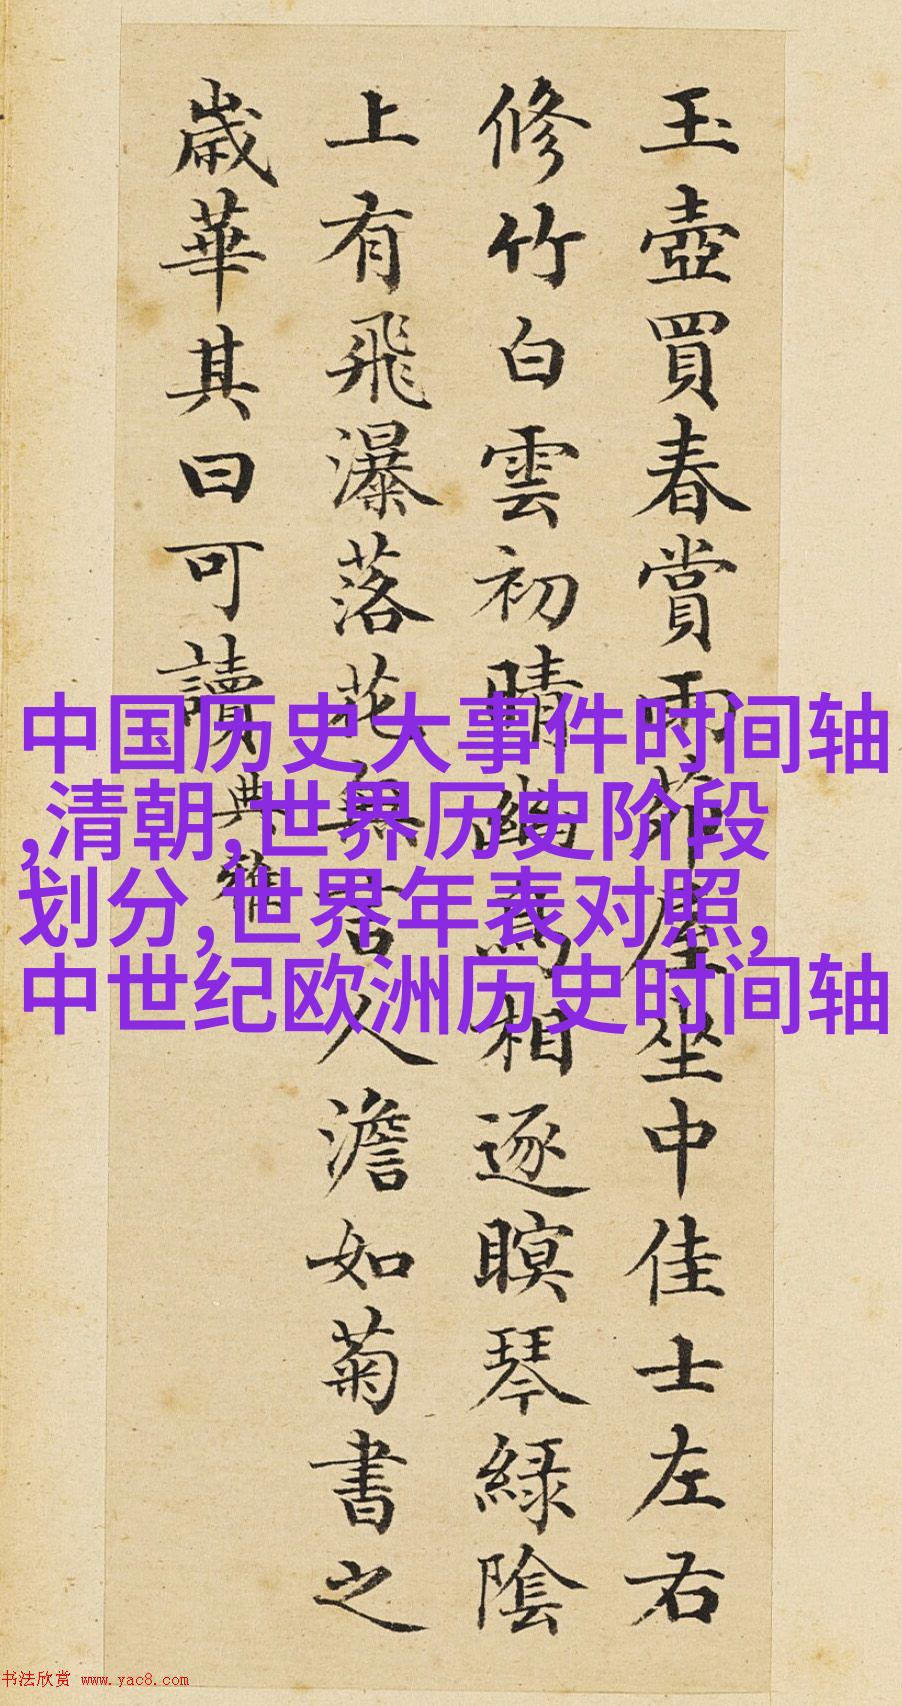 玉壺買春賞雨茆屋坐中佳士左右
修竹白雲初晴幽鳥相逐暝琴綠陰
上有飛瀑落花無言人澹如菊書之
歲華其曰可讀
典雅
中国历史大事件时间轴
,清朝,世界历史阶段
划分,世界年表对照,
中世纪欧洲历史时间轴
书法欣赏 www.yac8.com